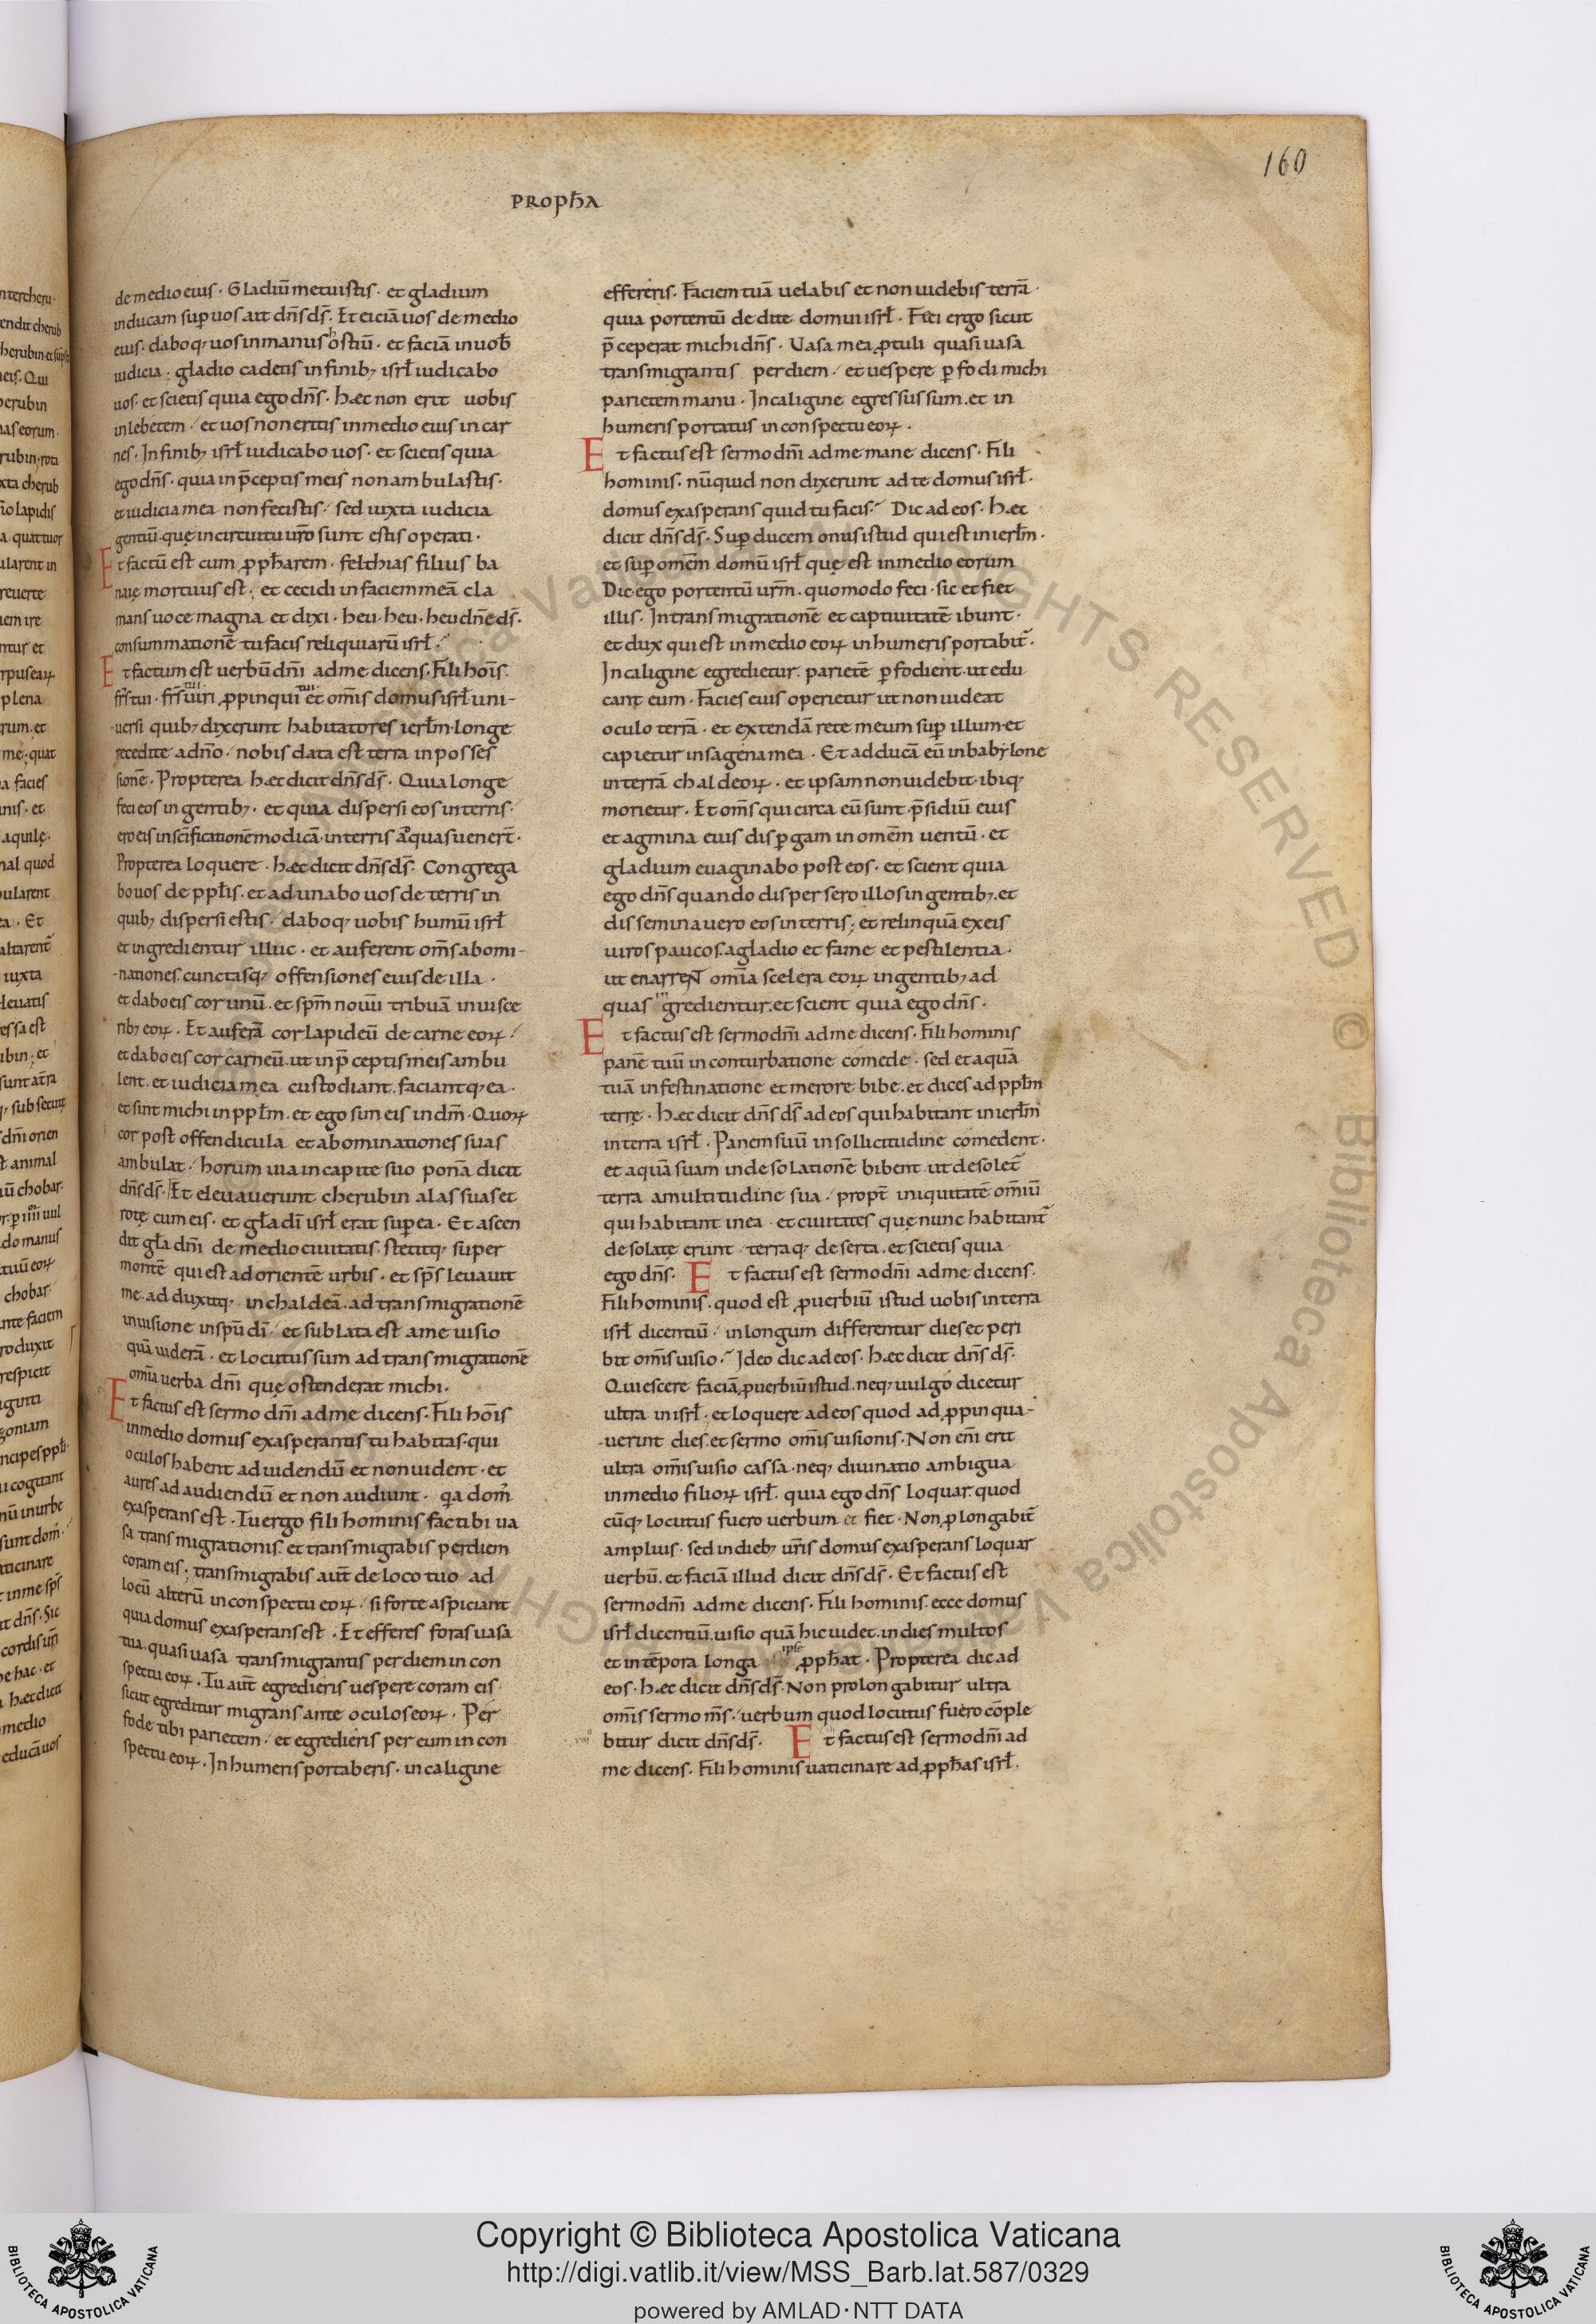 160
PROPħA
de medio eius · Gladiū metuistis · et gladium
inducam sup̄ uos ait dn̄s ds̄ · Et eiciā uos de medio
eius · daboq; uos in manus hostiū · et faciā in uob̄
iudicia ; gladio cadetis in finib; isrł iudicabo
uos · et scietis quia ego dn̄s · hæc non erit uobis
in lebetem · et uos non eritis in medio eius in car
nes · In finib; isrł iudicabo uos · et scietis quia
ego dn̄s · quia in p̄ceptis meis non ambulastis ·
et iudicia mea non fecistis · sed iuxta iudicia
gentiū · quę in circuitu ur̄o sunt estis operati ·
Et factū est cum ꝓpħarem · felthias filius ba
naię mortuus est ; et cecidi in faciem meā cla
mans uoce magna et dixi · heu · heu · heu dn̄e ds̄ ·
consummationē tu facis reliquiarū isrł ·
Et factum est uerbū dn̄i ad me dicens · Fili hoīs ·
fr̄s tui · fr̄s tui uiri ꝓpinqui tui et om̄is domus isrł uni-
-uersi quib; dixerunt habitatores ierłm · longe
recedite a dn̄o · nobis data est terra in posses
sionē · Propterea hæc dicit dn̄s ds̄ · Quia longe
feci eos in gentib; · et quia dispersi eos in terris ·
ero eis in sc̄ificationē modicā · in terris ad quas uener̄t ·
Propterea loquere · hæc dicit dn̄s ds̄ · Congrega
bo uos de ppłis · et adunabo uos de terris in
quib; dispersi estis · daboq; uobis humū isrł
et ingredientur illuc · et auferent om̄s abomi-
-nationes · cunctasq; offensiones eius de illa ·
et dabo eis cor unū · et spm̄ nouū tribuā in uisce
rib; eoꝝ · Et auferā cor lapideū de carne eoꝝ ·
et dabo eis cor carneū · ut in p̄ceptis meis ambu
lent · et iudicia mea custodiant · faciantq; ea ·
et sint michi in ppłm · et ego sun eis in dm̄ · Quoꝝ
cor post offendicula et abominationes suas
ambulat · horum uia in capite suo ponā dicit
dn̄s ds̄ · Et eleuauerunt cherubin alas suas et
rotę cum eis · et gła dī isrł erat sup̄ ea · Et ascen
dit gła dn̄i de medio ciuitatis · stetitq; super
montē qui est ad orientē urbis · et sps̄ leuauit
me · adduxitq; in chaldeā · ad transmigrationē
in uisione in spū dī · et sublata est a me uisio
quā uiderā · et locutus sum ad transmigrationē
om̄ia uerba dn̄i quę ostenderat michi ·
Et factus est sermo dn̄i ad me dicens · Fili hoīs
in medio domus exasperantis tu habitas · qui
oculos habent ad uidendū et non uident · et
aures ad audiendū et non audiunt · qa dom̄
exasperans est · Tu ergo fili hominis fac tibi ua
sa transmigrationis · et transmigrabis per diem
coram eis ; transmigrabis aūt de loco tuo ad
locū alterū in conspectu eoꝝ · si forte aspiciant
quia domus exasperans est · Et efferes foras uasa
tua · quasi uasa transmigrantis per diem in con
spectu eoꝝ · Tu aūt egredieris uespere coram eis ·
sicut egreditur migrans ante oculos eoꝝ · Per
fode tibi parietem · et egredieris per eum in con
spectu eoꝝ · In humeris portaberis · in caligine
effereris · Faciem tuā uelabis et non uidebis terrā ·
quia portentū dedi te domui isrł · Feci ergo sicut
p̄ceperat michi dn̄s · Uasa mea ꝓtuli quasi uasa
transmigrantis per diem · et uespere ꝑfodi michi
parietem manu · In caligine egressus sum · et in
humeris portatus in conspectu eoꝝ ·
Et factus est sermo dn̄i ad me mane dicens · Fili
hominis · nūquid non dixerunt ad te domus isrł ·
domus exasperans quid tu facis · Dic ad eos · hæc
dicit dn̄s ds̄ · Sup̄ ducem onus istud qui est in ierłm ·
et sup̄ omēm domū isrł quę est in medio eorum
Dic ego portentū ur̄m · quomodo feci · sic et fiet
illis · In transmigrationē et captiuitatē ibunt ·
et dux qui est in medio eoꝝ in humeris portabit̄ ·
In caligine egredietur · parietē ꝑfodient · ut edu
cant eum · Facies eius operietur ut non uideat
oculo terrā · et extendā rete meum sup̄ illum · et
capietur in sagena mea · Et adducā eū in babylone
in terrā chaldeoꝝ · et ipsam non uidebit · ibiq;
morietur · Et om̄s qui circa eū sunt · p̄sidiū eius
et agmina eius disꝑgam in omēm uentū · et
gladium euaginabo post eos · et scient quia
ego dn̄s quando dispersero illos in gentib; · et
disseminauero eos in terris ; et relinquā ex eis
uiros paucos a gladio et fame et pestilentia ·
ut enarrent om̄ia scelera eoꝝ in gentib; ad
quas ingredientur · et scient quia ego dn̄s ·
Et factus est sermo dn̄i ad me dicens · Fili hominis
panē tuū in conturbatione comede · sed et aquā
tuā in festinatione et merore bibe · et dices ad ppłm
terrę · hæc dicit dn̄s ds̄ ad eos qui habitant in ierłm
in terra isrł · Panem suū in sollicitudine comedent ·
et aquā suam in desolationē bibent ut desolet̄
terra a multitudine sua · propt̄ iniquitatē om̄iū
qui habitant in ea · et ciuitates quę nunc habitant̄
desolatę erunt · terraq; deserta · et scietis quia
ego dn̄s · Et factus est sermo dn̄i ad me dicens ·
Fili hominis · quod est ꝓuerbiū istud uobis in terra
isrł dicentiū · in longum differentur dies et peri
bit om̄is uisio · Ideo dic ad eos · hæc dicit dn̄s ds̄ ·
Quiescere faciā ꝓuerbiū istud · neq; uulgo dicetur
ultra in isrł · et loquere ad eos quod adꝓpinqua-
-uerint dies · et sermo om̄is uisionis · Non eni̅ erit
ultra om̄is uisio cassa · neq; diuinatio ambigua
in medio filioꝝ isrł · quia ego dn̄s loquar · quod
cūq; locutus fuero uerbum et fiet · Non ꝓlongabit̄
amplius · sed in dieb; ur̄is domus exasperans loquar
uerbū · et faciā illud dicit dn̄s ds̄ · Et factus est
sermo dn̄i ad me dicens · Fili hominis · ecce domus
isrł dicentiū · uisio quā hic uidet · in dies multos
et in tēpora longa ipse ꝓpħat · Propterea dic ad
eos · hæc dicit dn̄s ds̄ · Non prolongabitur ultra
om̄is sermo ms̄ · uerbum quod locutus fuero cōple
bitur dicit dn̄s ds̄ · Et factus est sermo dn̄i ad
me dicens · Fili hominis uaticinare ad ꝓpħas isrł ·
Copyright © Biblioteca Apostolica Vaticana
http://digi.vatlib.it/view/MSS_Barb.lat.587/0329
powered by AMLAD·NTT DATA